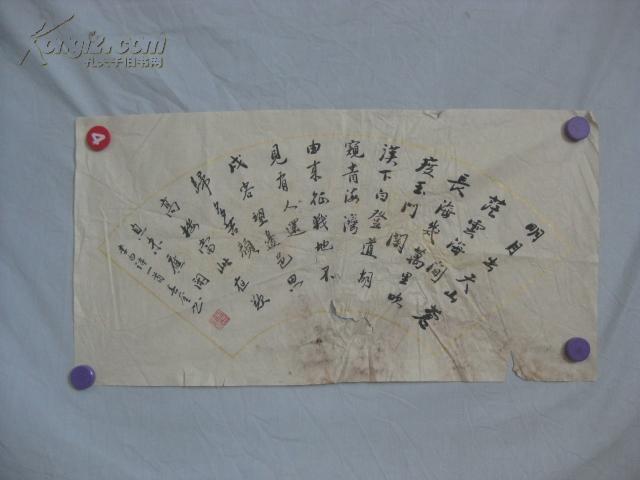 孔夫子旧书网
Kongfz.com
4
明月出天山蒼
茫雲海間
長風幾萬里吹
度玉門關
漢下白登道胡
窺青海灣
由來征戰地不
見有人還
戍客望邊邑思
歸多苦顏
高樓當此夜歎
息未應閑
李白詩一首